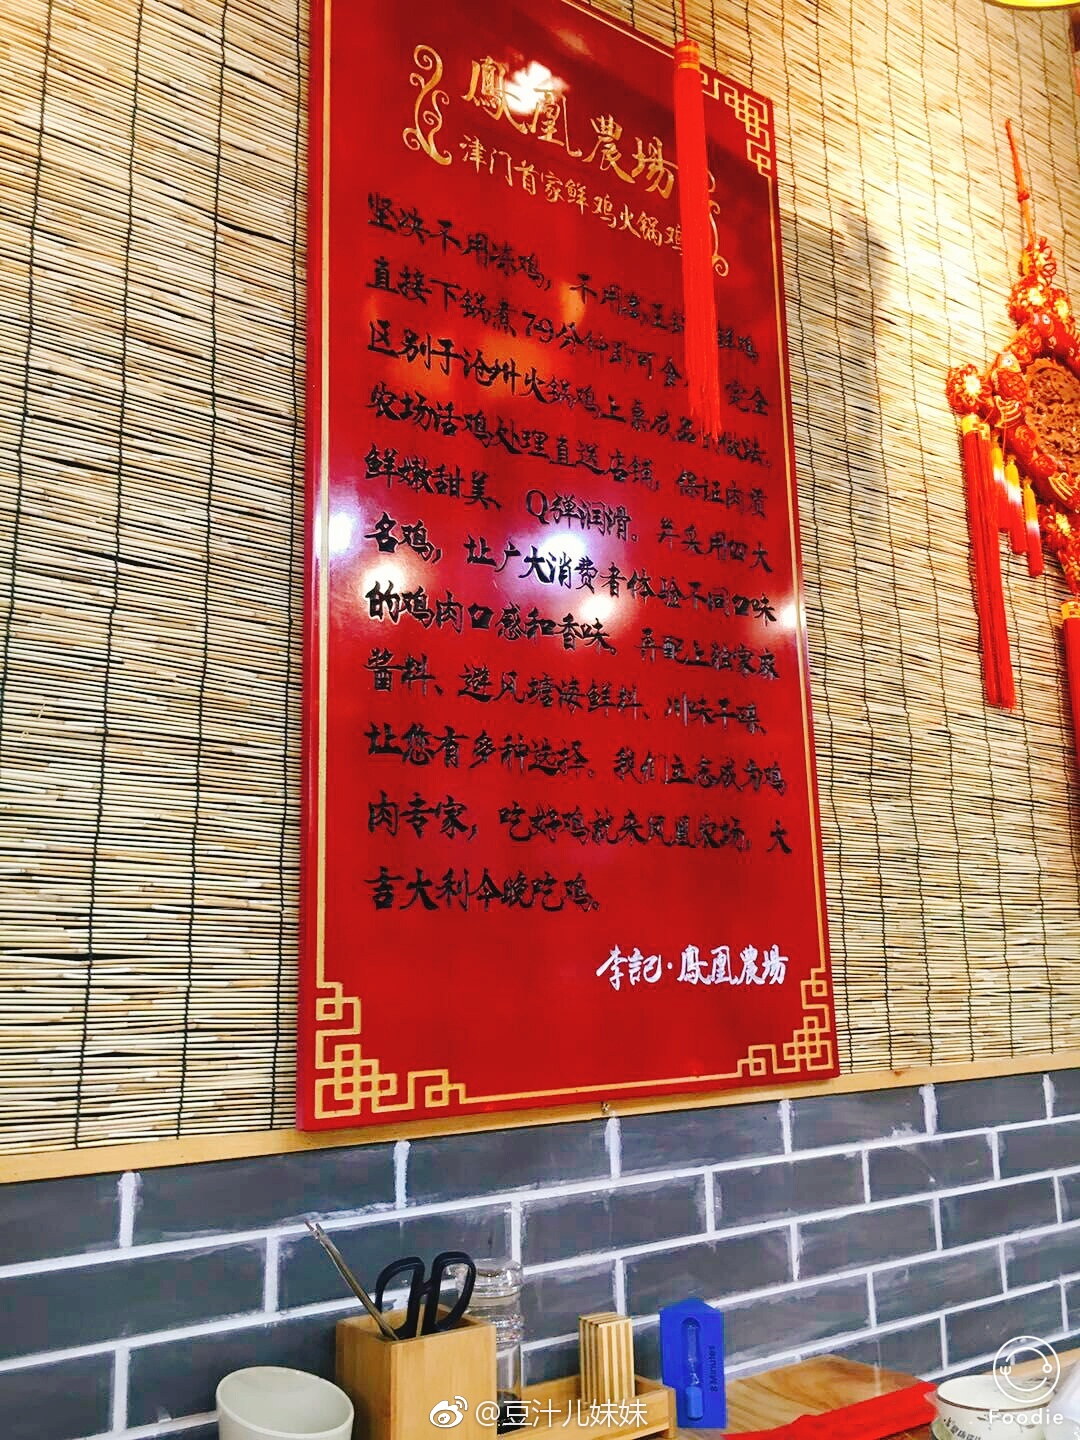 鳳凰農場
津门首家鲜鸡火锅鸡
坚决不用冻鸡，不用高压锅 鲜鸡
直接下锅煮7-9分钟即可食 完全
区别于沧州火锅鸡上桌成品的做法。
农场活鸡处理直送店铺，保证肉质
鲜嫩甜美、Q弹润滑。并采用四大
名鸡，让广大消费者体验不同口味
的鸡肉口感和香味。再配上独家麻
酱料、避风塘海鲜料、川味干碟、
让您有多种选择、我们立志成为鸡
肉专家，吃好鸡就来凤凰农场，大
吉大利今晚吃鸡。
李記·鳳凰農場
8 Minutes
@豆汁儿妹妹
Foodie